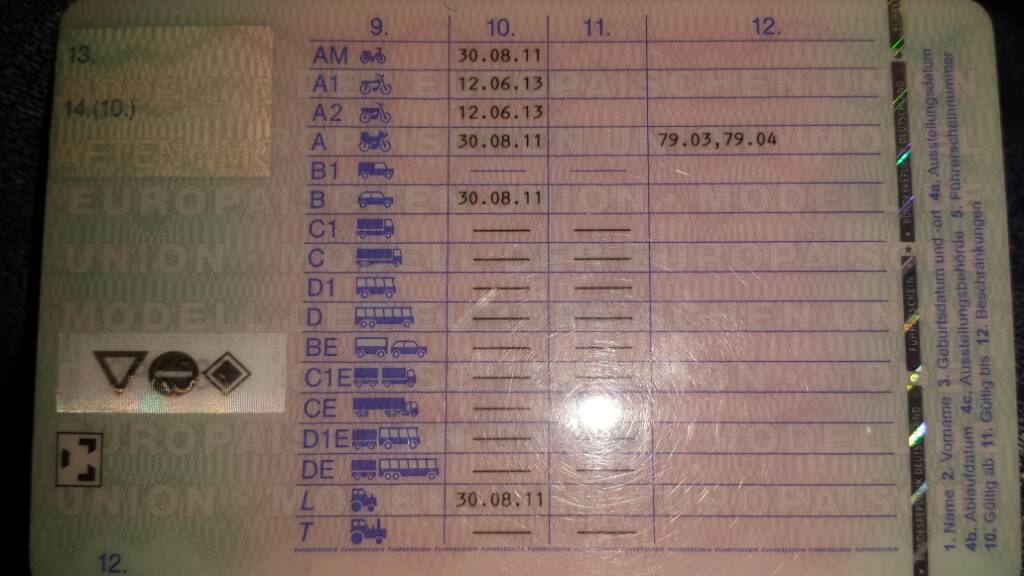 9. 10. 11. 12.
13.
14.(10.)
AM 30.08.11
A1 12.06.13
A2 12.06.13
A 30.08.11 79.03,79.04
B1
B 30.08.11
C1
C
D1
D
BE
C1E
CE
D1E
DE
L 30.08.11
T
12.
1. Name 2. Vorname 3. Geburtsdatum und -ort 4a. Ausstellungsdatum
4b. Ablaufdatum 4c. Ausstellungsbehörde 5. Führerscheinnummer
10. Gültig ab 11. Gültig bis 12. Beschränkungen